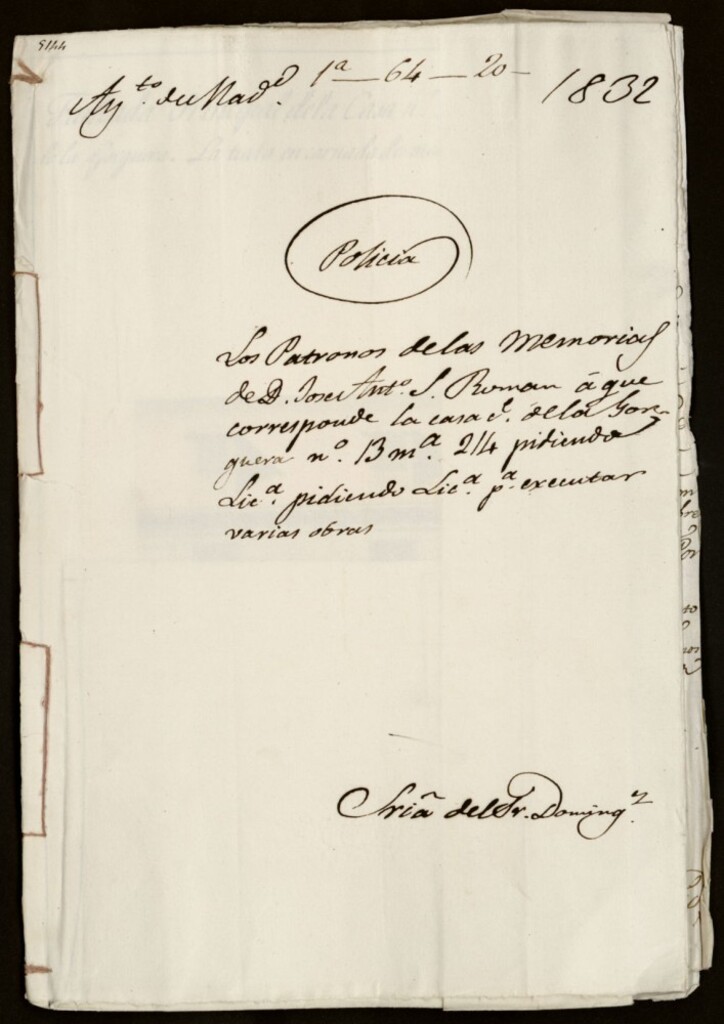 5144
Ay.to de Mad.d 1a — 64 — 20 — 1832
Policia
Los Patronos de las Memorias
de D. Josef Anto. S. Roman á que
corresponde la casa c. de la Gor-
guera no. 13 m.a 214 pidiendo
Lic.a pidiendo Lic.a p.a executar
varias obras
Sria del Sr. Doming.z